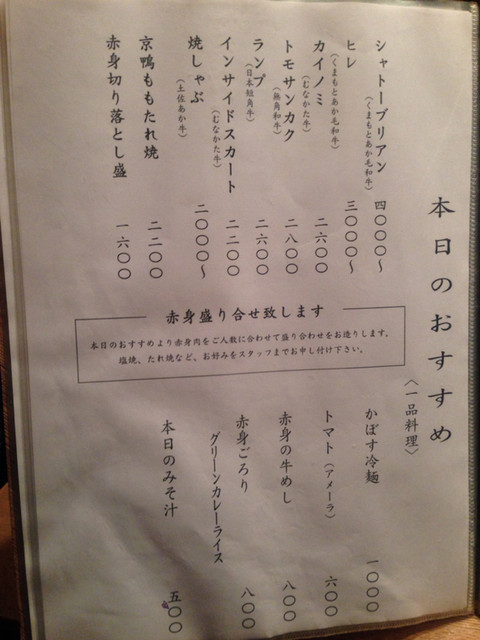 本日のおすすめ
シャトーブリアン
(くまもとあか毛和牛)
四〇〇〇〜
ヒレ
(くまもとあか毛和牛)
三〇〇〇〜
カイノミ
(むなかた牛)
二六〇〇
トモサンカク
(無角和牛)
二八〇〇
ランプ
(日本短角牛)
二六〇〇
インサイドスカート
(むなかた牛)
二二〇〇
焼しゃぶ
(土佐あか牛)
二〇〇〇〜
京鴨ももたれ焼
二二〇〇
赤身切り落とし盛
一六〇〇
赤身盛り合せ致します
本日のおすすめより赤身肉をご人数に合わせて盛り合わせをお造りします。
塩焼、たれ焼など、お好みをスタッフまでお申し付け下さい。
〈一品料理〉
かぼす冷麺
一〇〇〇
トマト(アメーラ)
六〇〇
赤身の牛めし
八〇〇
赤身ごろり
グリーンカレーライス
八〇〇
本日のみそ汁
五〇〇